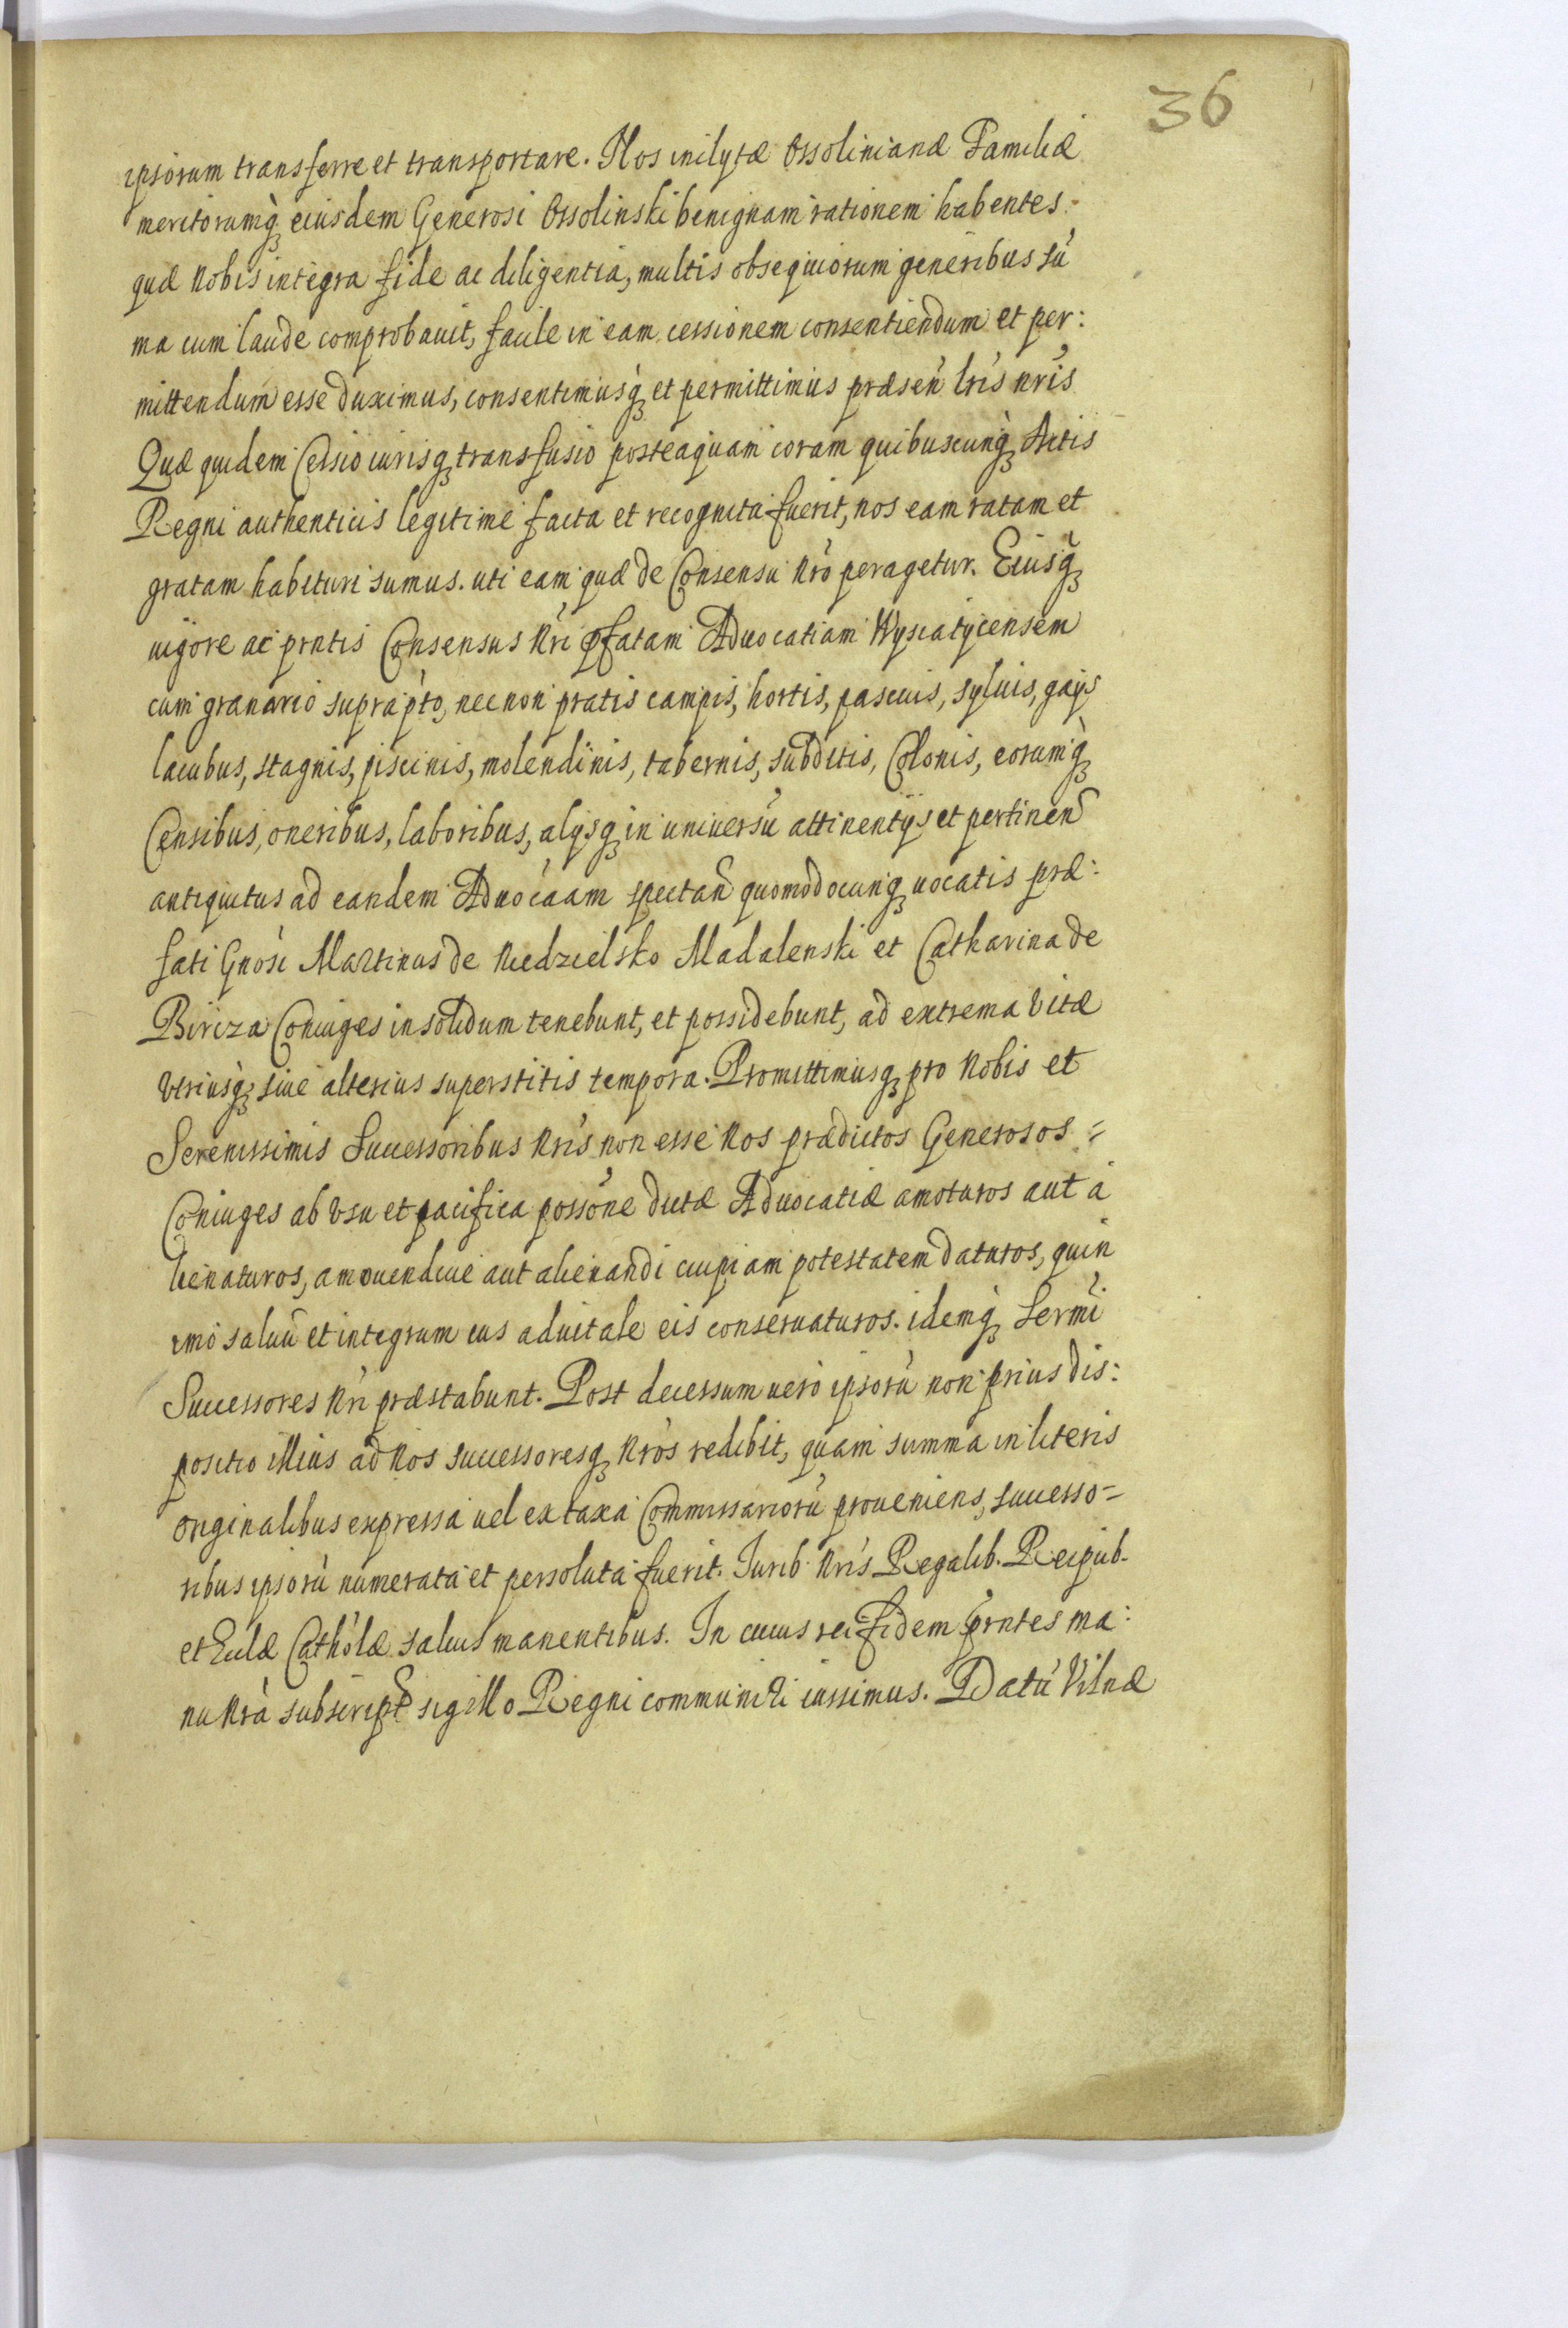 36
ipsorum transferre et transportare. Nos inclytæ Ossolinianæ Familiæ
meritorumq̀ʒ eiusdem Generosi Ossolinski benignam rationem habentes
quæ Nobis integra fide ac diligentia, multis obsequiorum generibus sū
ma cum laude comprobauit, facile in eam cessionem consentiendum et per:
mittendum esse duximus, consentimusq̀ʒ et permittimus præsen̄ lr̄is nr̄is
Quæ quidem Cessio iurisqʒ transfusio posteaquam coram quibuscunq̀ʒ Actis
Regni authenticis legitime facta et recognita fuerit, nos eam ratam et
gratam habituri sumus. uti eam quæ de Consensu Nr̄o peragetur. Eiusq̀ʒ
uigore ac prntis Consensus Nr̄i pfatam Aduocatiam Wysiatycensem
cum granario suprap̄to, necnon pratis campis, hortis, pascuis, syluis, gays
lacubus, stagnis, piscinis, molendinis, tabernis, subditis, Colonis, eorumq̀ʒ
Censibus, oneribus, laboribus, alysqʒ in uniuersū attinentys et pertinen̄
antiquitus ad eandem Aduocāam spectan̄ quomodocunqʒ uocatis præ:
fati Gnōsi Martinus de Niedzielsko Madalenski et Catharina de
Bircza Coniuges insolidum tenebunt, et possidebunt, ad extrema Vitæ
Vtriusq̀ʒ siue alterius superstitis tempora. Promittimusqʒ pro Nobis et
Serenissimis Successoribus Nr̄is non esse Nos prædictos Generosos =
Coniuges ab Vsu et pacifica possōne dictæ Aduocatiæ amoturos aut a
lienaturos, amouendiue aut alienandi cuipiam potestatem daturos, quin
imo saluū et integrum ius aduitale eis conseruaturos. idemq̀ʒ Sermi
Successores Nr̄i præstabunt. Post decessum uero ipsorū non prius dis:
positio illius ad Nos successoresqʒ Nr̄os redibit, quam summa in literis
originalibus expressa uel ex taxa Commissariorū proueniens, successo=
ribus ipsorū numerata et persoluta fuerit. Iurib. Nr̄is Regalib. Reipub.
et Ecclæ Cathōlæ saluis manentibus. In cuius rei fidem prntes ma:
nu Nr̄a subscript̄ sigillo Regni communiri iussimus. Datū Vilnæ